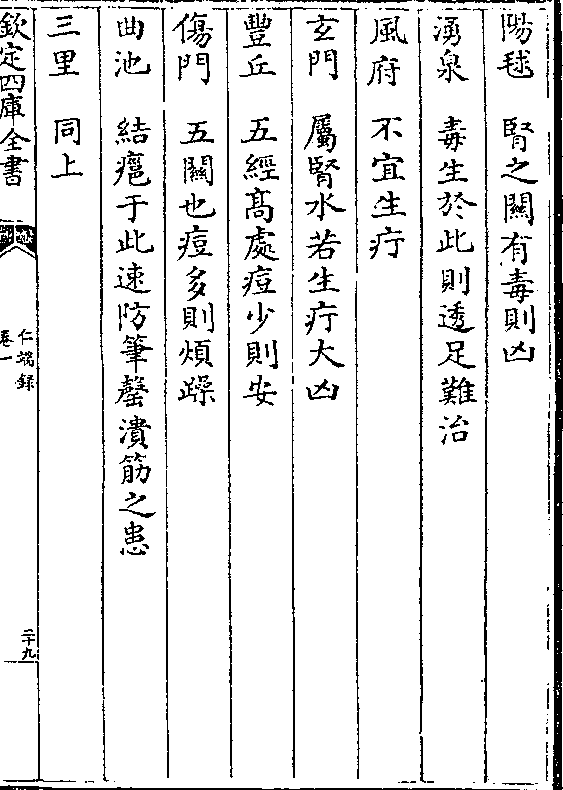 陽毬　腎之關有毒則凶
湧泉　毒生於此則透足難治
風府　不宜生疔
玄門　屬腎水若生疔大凶
豐丘　五經高處痘少則安
傷門　五關也痘多則煩躁
曲池　結疤于此速防筆罄潰筋之患
三里　同上
欽定四庫全書
仁端錄
卷一
二十九